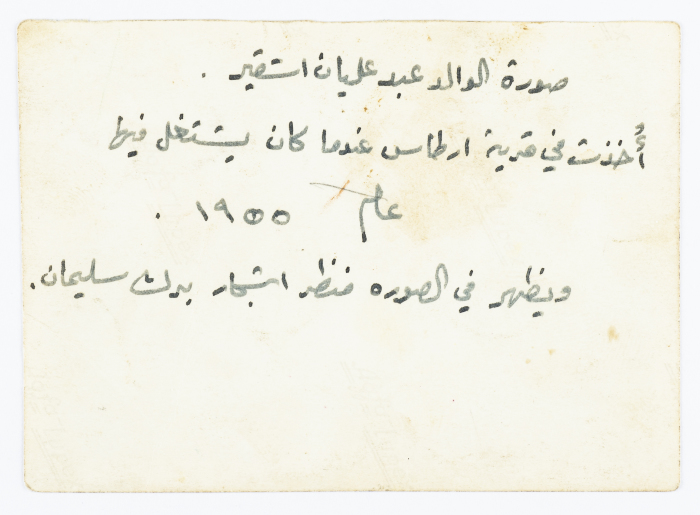 صورة الوالد عبد عليان استقير .
أُخذت في قرية ارطاس عندما كان يشتغل فيها
عام ١٩٥٥ .
ويظهر في الصوره منظر اشجار برك سليمان .